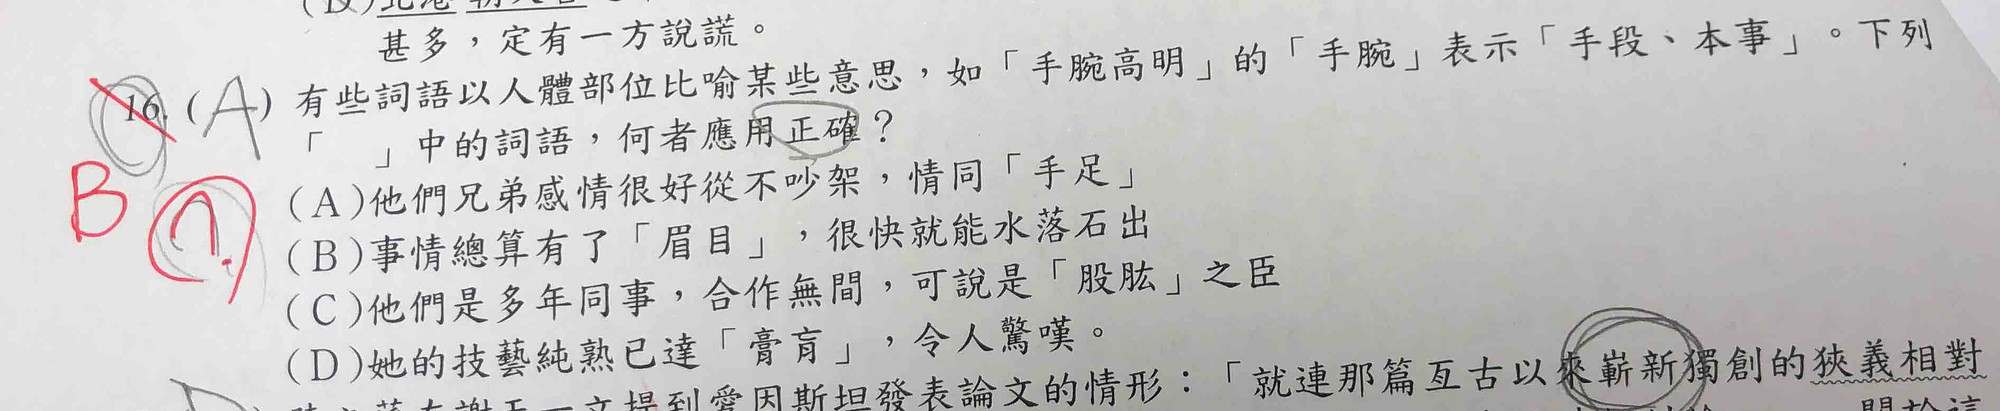 甚多，定有一方說謊。
16. (A) 有些詞語以人體部位比喻某些意思，如「手腕高明」的「手腕」表示「手段、本事」。下列
「　」中的詞語，何者應用正確？
B
(A)他們兄弟感情很好從不吵架，情同「手足」
(B)事情總算有了「眉目」，很快就能水落石出
(C)他們是多年同事，合作無間，可說是「股肱」之臣
(D)她的技藝純熟已達「膏肓」，令人驚嘆。
提到愛因斯坦發表論文的情形：「就連那篇亙古以來嶄新獨創的狹義相對